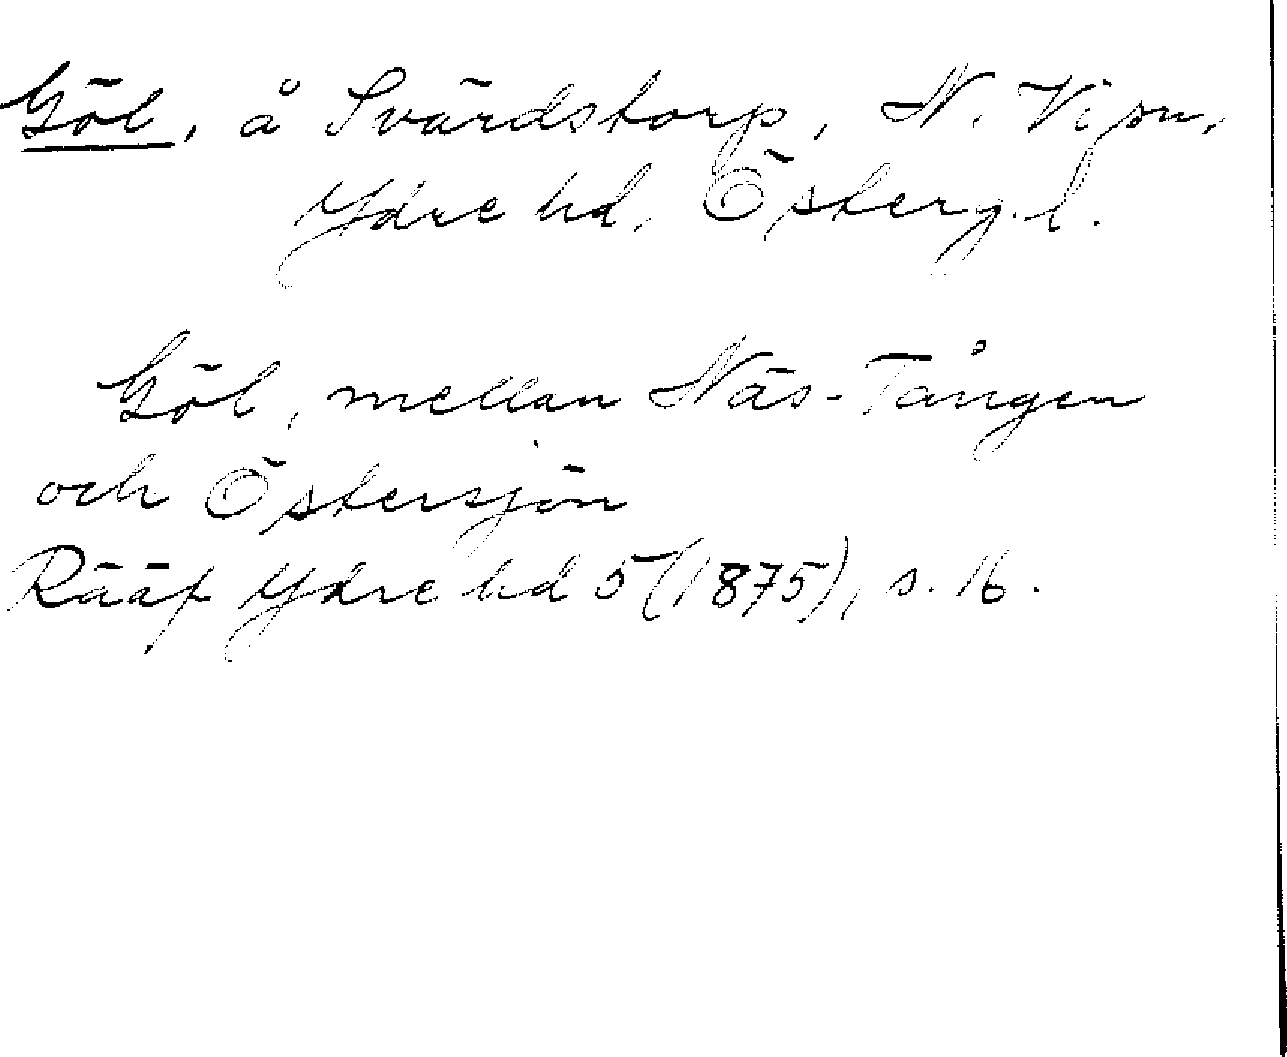 Göl, å Svärdstorp, N. Vi sn,
Ydre hd, Österg. l.
Göl, mellan Näs-Tången
och Östersjön
Rääf Ydre hd 5 (1875), s. 16.